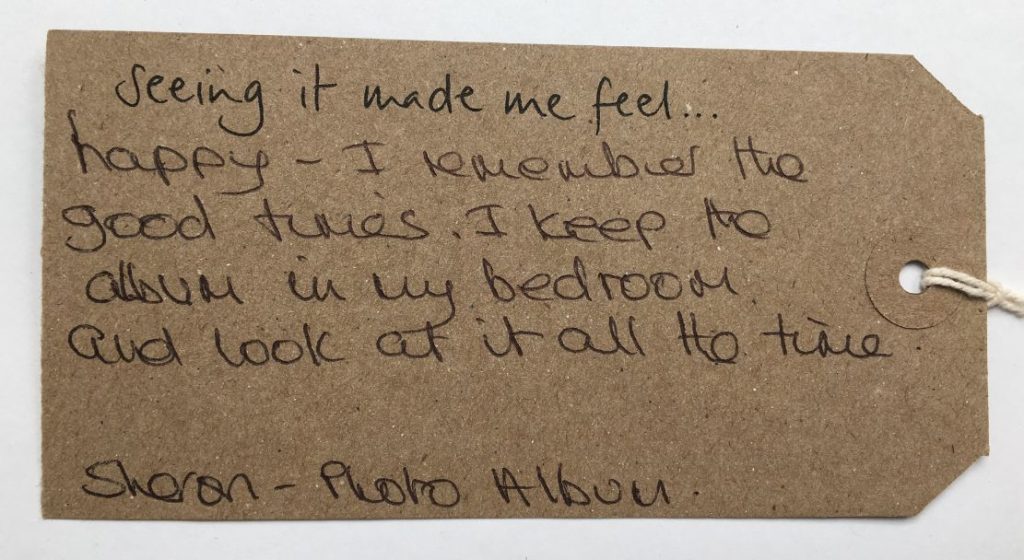 Seeing it made me feel...
happy - I remember the
good times. I keep the
album in my bedroom.
And look at it all the time.
Sharon - Photo Album.